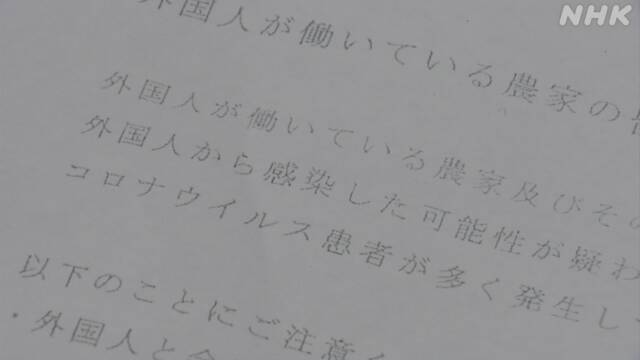 NHK
外国人が働いている農家の
外国人が働いている農家及びその
外国人から感染した可能性が疑わ
コロナウイルス患者が多く発生し
以下のことにご注意く
・外国人と会